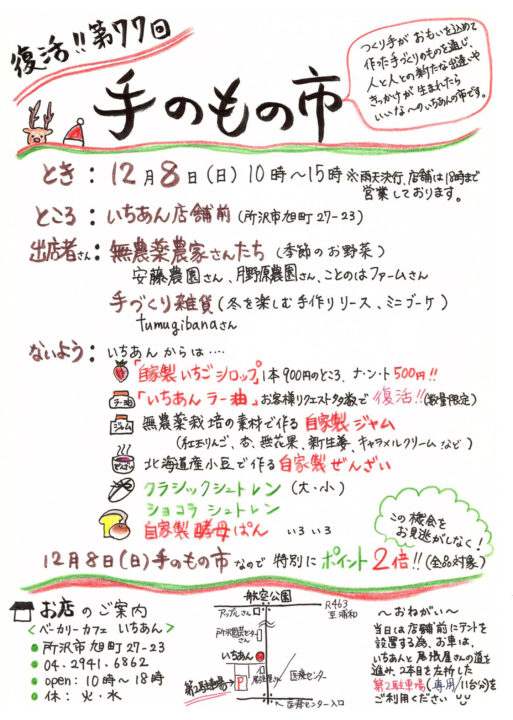 復活!!第77回
手のもの市
つくり手が おもいを込めて
作った手づくりのものを通じ、
人と人との新たな出逢いや
きっかけが 生まれたら
いいな〜のいちあんの市です。
とき: 12月8日(日)10時〜15時 ※雨天決行、店舗は18時まで
営業しております。
ところ: いちあん店舗前(所沢市旭町27-23)
出店者さん: 無農薬農家さんたち(季節のお野菜)
安藤農園さん、月野原農園さん、ことのはファームさん
手づくり雑貨(冬を楽しむ手作りリース、ミニブーケ)
tumugibanaさん
ないよう: いちあんからは‥‥
「自家製いちごシロップ」1本900円のところ、ナ・ン・ト500円!!
ラー油
「いちあん ラー油」お客様リクエスト多数で 復活!!(数量限定)
ジャム
無農薬栽培の素材で作る 自家製ジャム
(紅玉りんご、杏、無花果、新生姜、キャラメルクリームなど)
ぜんざい
北海道産小豆で作る自家製ぜんざい
クラシックシュトレン(大・小)
ショコラ シュトレン
自家製酵母ぱん いろいろ
この機会を
お見逃がしなく!
12月8日(日)手のもの市なので 特別にポイント2倍!!(全品対象)
お店のご案内
<ベーカリーカフェ いちあん>
所沢市旭町27-23
04.2941.6862
open:10時〜18時
休:火・水
航空公園
アップルさん
R463
至浦和
いちあん
尾張屋さん
医療センター
第2駐車場
P
医療センター入口
〜おねがい〜
当日は店舗前にテントを
設置する為、お車は、
いちあんと尾張屋さんの道を
進み、2本目を左折した
第2駐車場(専用/11台分)を
ご利用ください